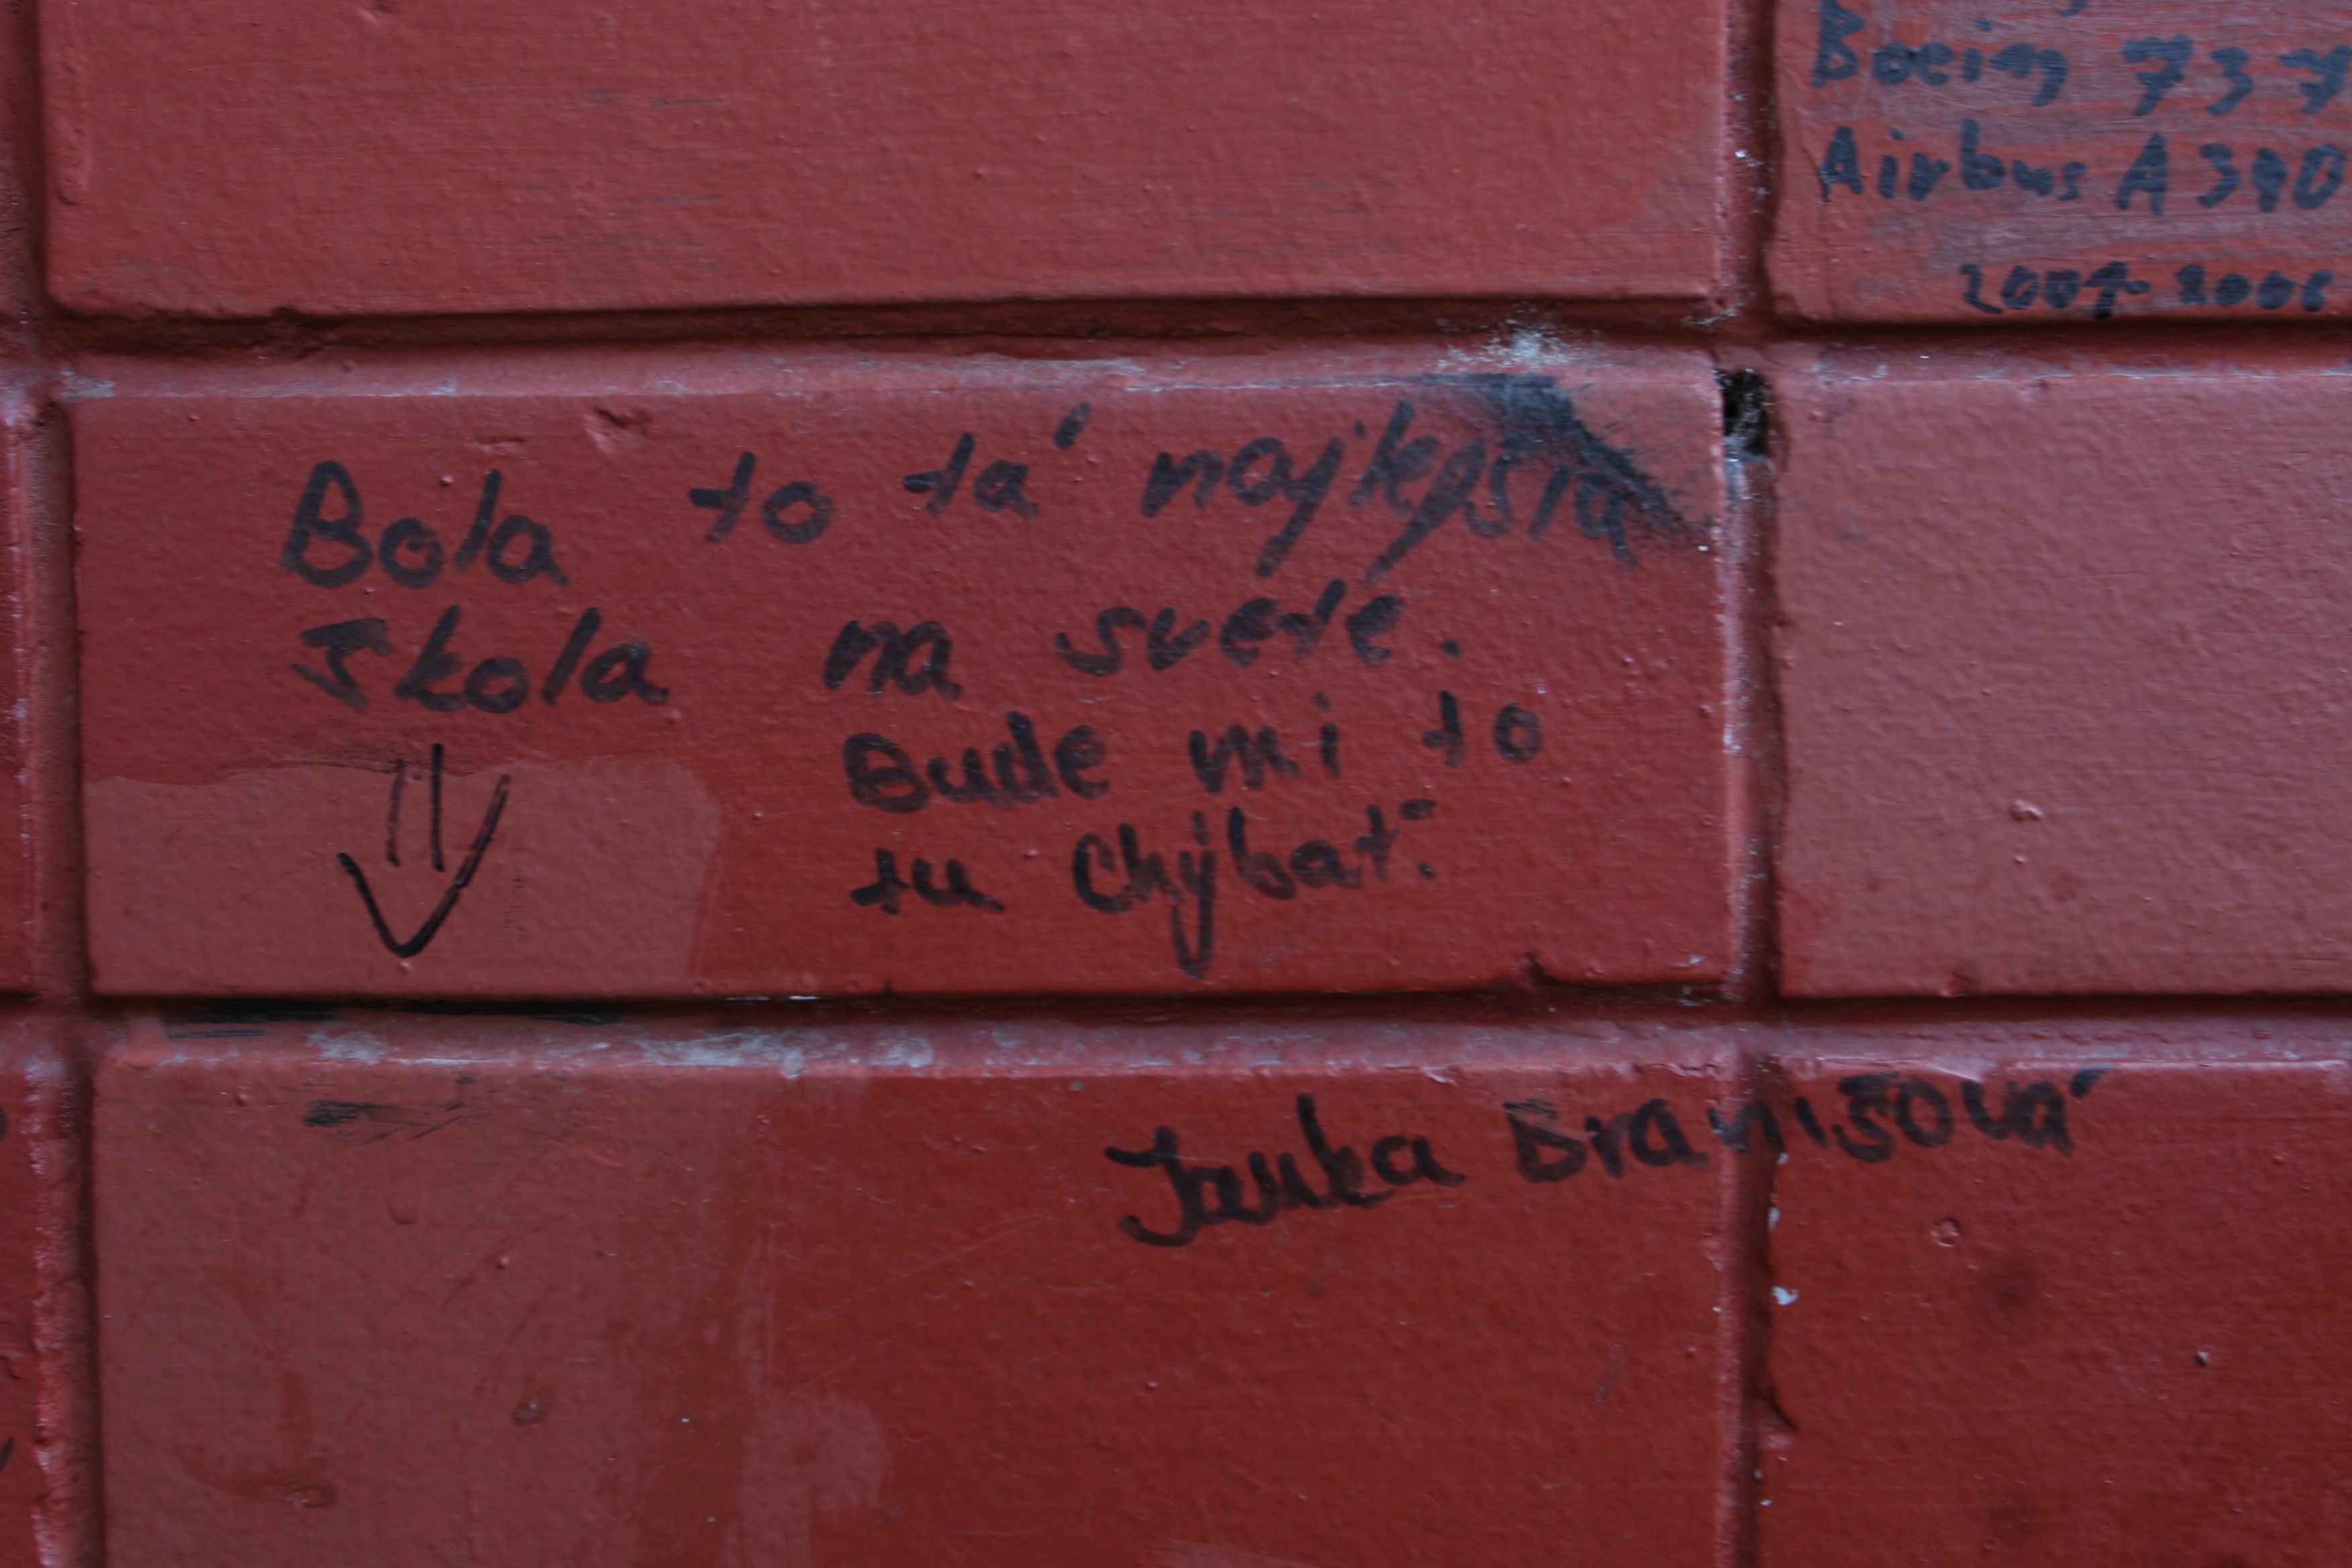 Boeing 737
Airbus A340
2004-2006
Bola to tá najlepšia
škola na svete.
Bude mi to
tu Chýbať.
Janka Branišová